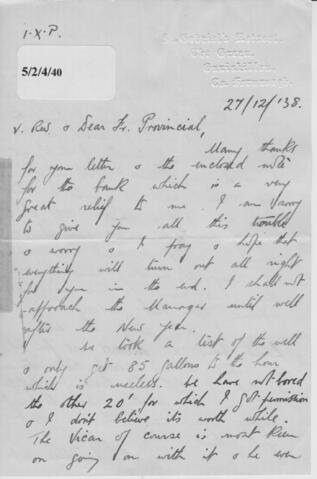 I.X.P.
St. Gabriel's Retreat,
The Graan,
Enniskillen,
Co. Fermanagh.
5/2/4/40
27/12/'38.
V. Rev. & Dear Fr. Provincial,
Many thanks
for your letter & the enclosed note
for the bank which is a very
great relief to me. I am sorry
to give you all this trouble
& worry & I pray & hope that
everything will turn out all right
for you in the end. I shall not
approach the Manager until well
after the New Year.
We took a test of the well
& only get 85 gallons to the hour
which is useless. We have not bored
the other 20' for which I got permission
& I don't believe its worth while.
The Vicar of course is most keen
on going on with it & he even